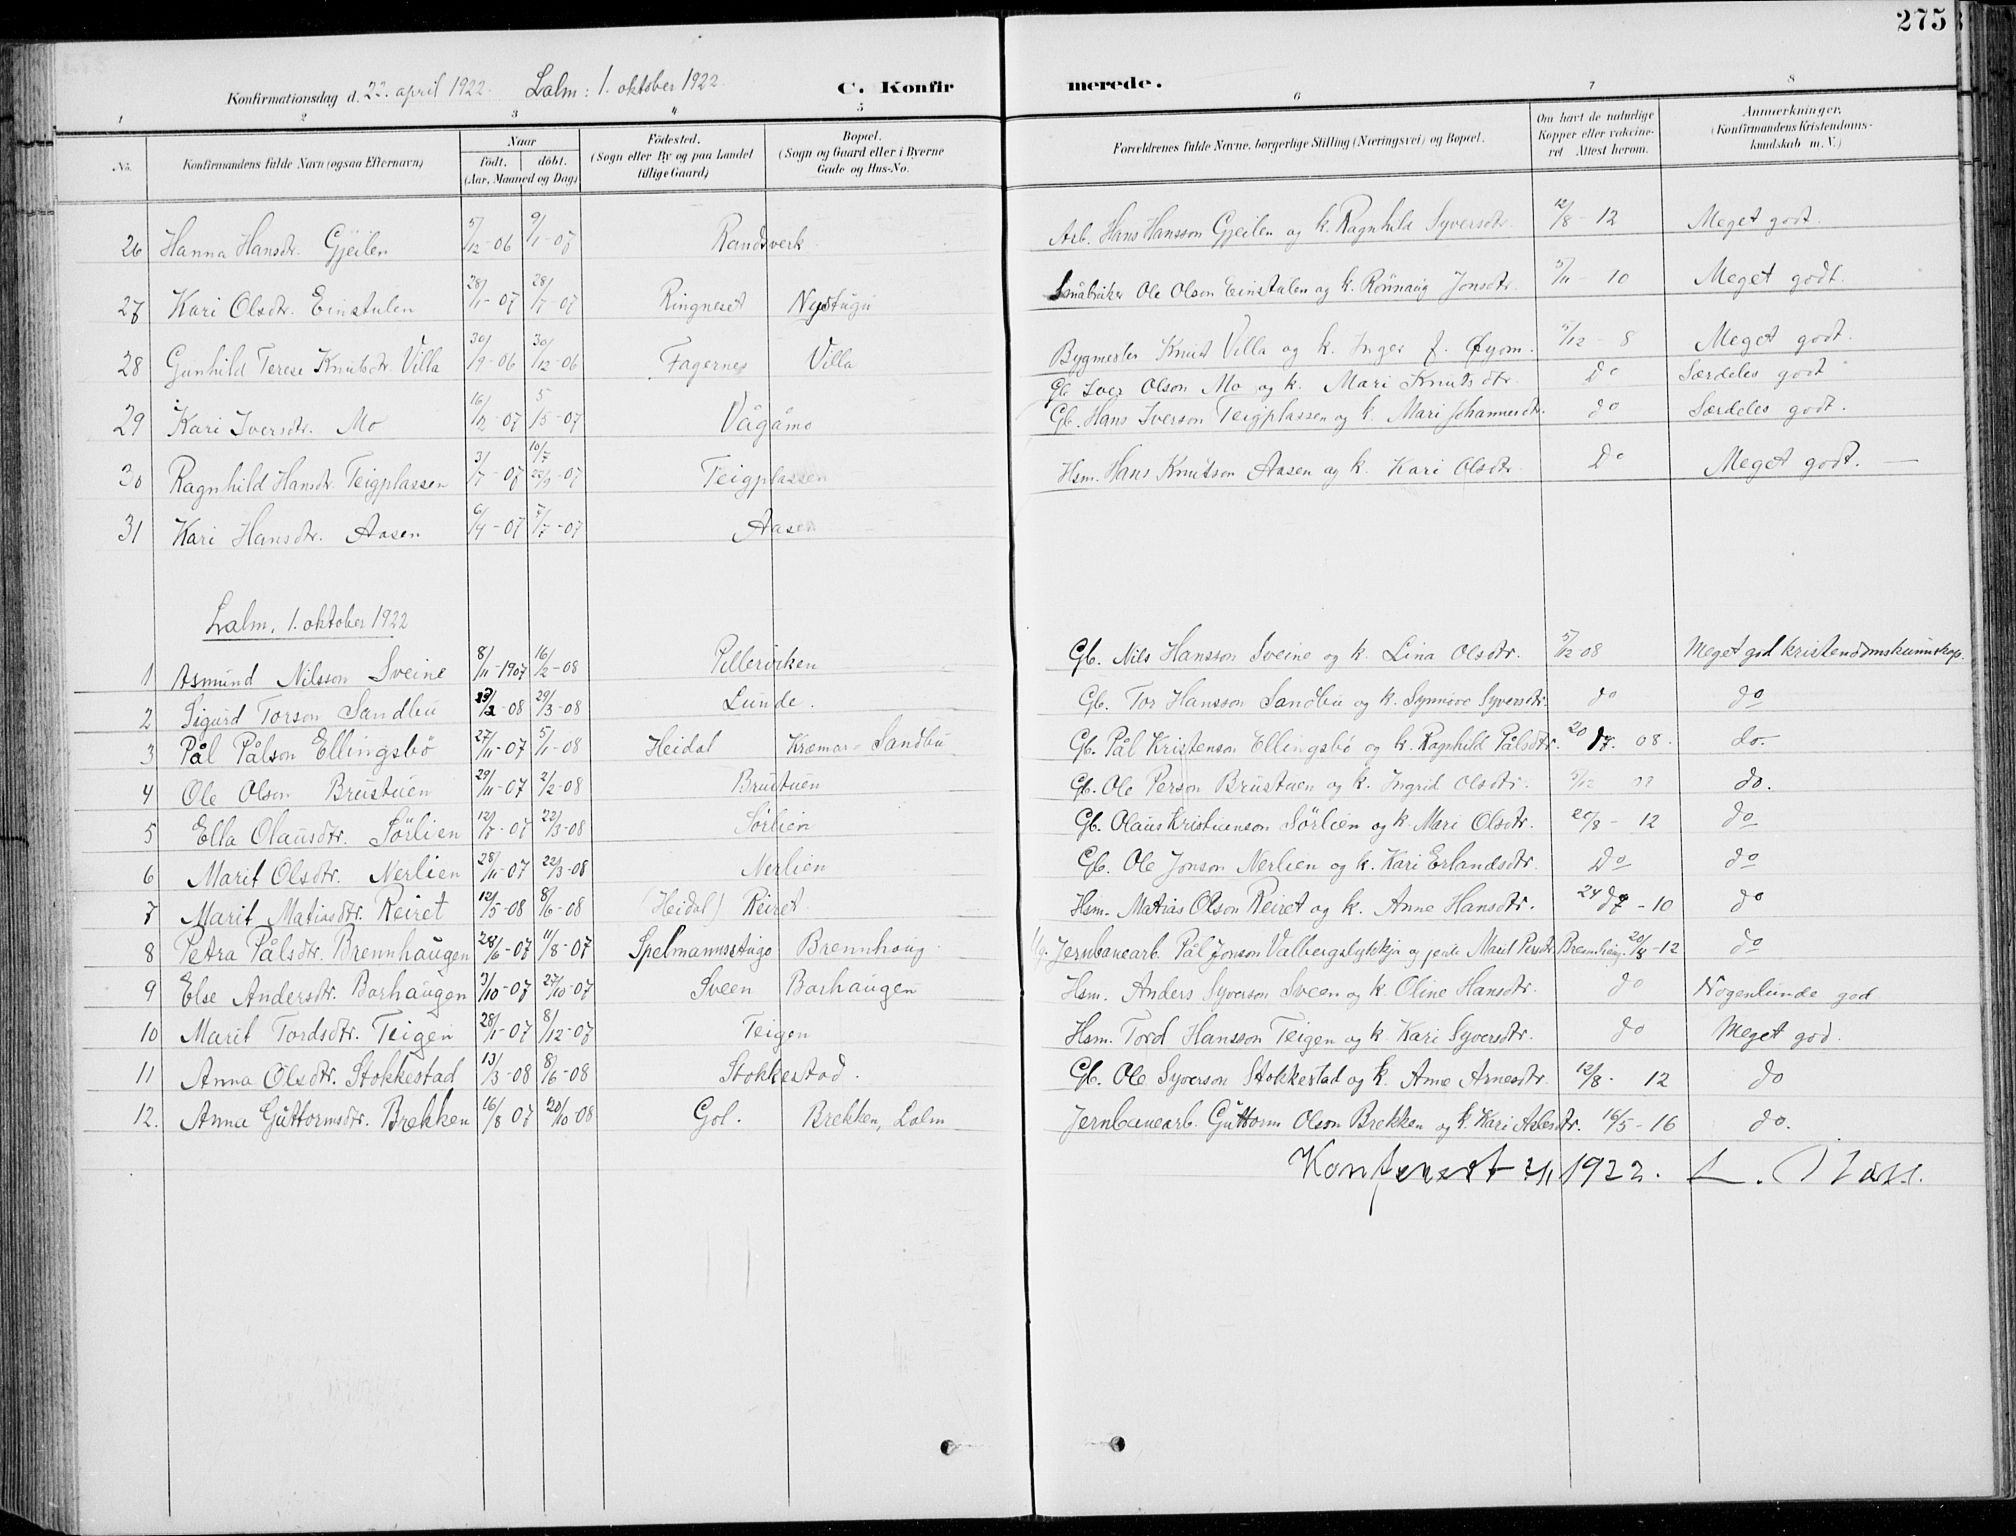 275
Konfirmationsdag d. 22. april 1922. Lalm: 1. oktober 1922. C. Konfirmerede.
1 2 3 4 5 6 7 8
No. Konfirmandens fulde Navn (ogsaa Efternavn) Naar født. døbt. (Aar, Maaned og Dag) Fødested. (Sogn eller By og paa Landet tillige Gaard) Bopæl. (Sogn og Gaard eller i Byerne Gade og Hus-No. Forældrenes fulde Navne, borgerlige Stilling (Næringsvei) og Bopæl. Om havt de naturlige Kopper eller vakcineret Attest herom. Anmerkninger, (Konfirmandens Kristendomskundskab m. V.)
26 Hanna Hansdr. Gjeilen 5/12-06 9/1-07 Randsverk Arb. Hans Hansson Gjeilen og k. Ragnhild Syversdtr. 12/8-12 Meget godt.
27 Kari Olsdtr. Einstulen 28/1-07 28/7-07 Ringneset Nystugu Småbruker Ole Olson Einstulen og k. Rönnaug Jonsdtr. 5/11 10 Meget godt.
28 Gunhild Terese Knutsdtr. Villa 30/9-06 30/12-06 Fagernes Villa Bygmester Knut Villa og k. Inger f. Øyom. 5/12-8 Meget godt.
29 Kari Iversdtr. Mo 16/12-07 5/5-07 Vågåmo Gb. Iver Olson Mo og k. Mari Knutsdtr. Do Særdeles godt
30 Ragnhild Hansdtr. Teigplassen 3/7-07 10/7-07 Teigplassen Gb. Hans Iverson Teigplassen og k. Mari Johannesdtr. do Særdeles godt.
31 Kari Hansdtr. Aasen 6/4-07 7/7-07 Aasen Hsm. Hans Knutson Aasen og k. Kari Olsdtr. Do Meget godt.
Lalm, 1. oktober 1922
1 Asmund Nilsson Sveine 8/11-1907 16/2-08 Pillerviken Gb. Nils Hansson Sveine og k. Lina Olsdtr. 5/12 08 Meget god kristendomskunnskap.
2 Sigurd Torson Sandbu 23/2-08 29/3-08 Lunde. Gb. Tor Hansson Sandbu og k. Synnöve Syversdtr. do do
3 Pål Pålson Ellingsbö 27/11-07 5/1-08 Heidal Kræmar-Sandbu Gb. Pål Kristenson Ellingsbö og k. Ragnhild Pålsdtr. 20/7. 08. do.
4 Ole Olson Brustuen 29/11-07 2/2-08 Brustuen Gb. Ole Person Brustuen og k. Ingrid Olsdtr. 5/12 do.
5 Ella Olausdtr. Sörlien 12/7-07 22/3-08 Sörlien Gb. Olaus Kristianson Sörlien og k. Mari Olsdtr. 20/8-12 do
6 Marit Olsdtr. Nerlien 28/11-07 22/3-08 Nerlien Gb. Ole Jonson Nerlien og k. Kari Erlandsdtr. Do do
7 Marit Matiasdtr. Reiret 12/5-08 8/6-08 (Heidal) Reiret Hsm. Matias Olson Reiret og k. Anne Hansdtr. 24/7-10 do
8 Petra Pålsdtr. Brennhaugen 28/6-07 11/8-07 Spelmannsstugo Brennhaug Jernbanearb. Pål Jonson Valbergslykkja og jente Marit Persdtr. Brennhaug. 20/8-12 do
9 Else Andersdtr. Barhaugen 3/10-07 27/10-07 Sveen Barhaugen Hsm. Anders Syverson Sveen og k. Oline Hansdtr. do Nogenlunde god
10 Marit Tordsdtr. Teigen 28/1-07 8/12-07 Teigen Hsm. Tord Hansson Teigen og k. Kari Syversdtr. do Meget god.
11 Anna Olsdtr. Stokkestad 13/3-08 8/6-08 Stokkestad. Gb. Ole Syverson Stokkestad og k. Anne Arnesdtr. 12/8. 12 do
12. Anna Guttormsdtr. Brekken 16/8 07 20/10-08 Gol. Brekken, Lalm Jernbanearb. Guttorm Olson Brekken og k. Kari Aslesdtr. 16/5-16 do.
Konferert 2/11 1922.